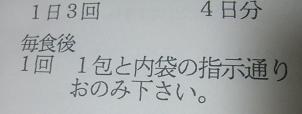 1日3回　4日分
毎食後
1回　1包と内袋の指示通り
おのみ下さい。